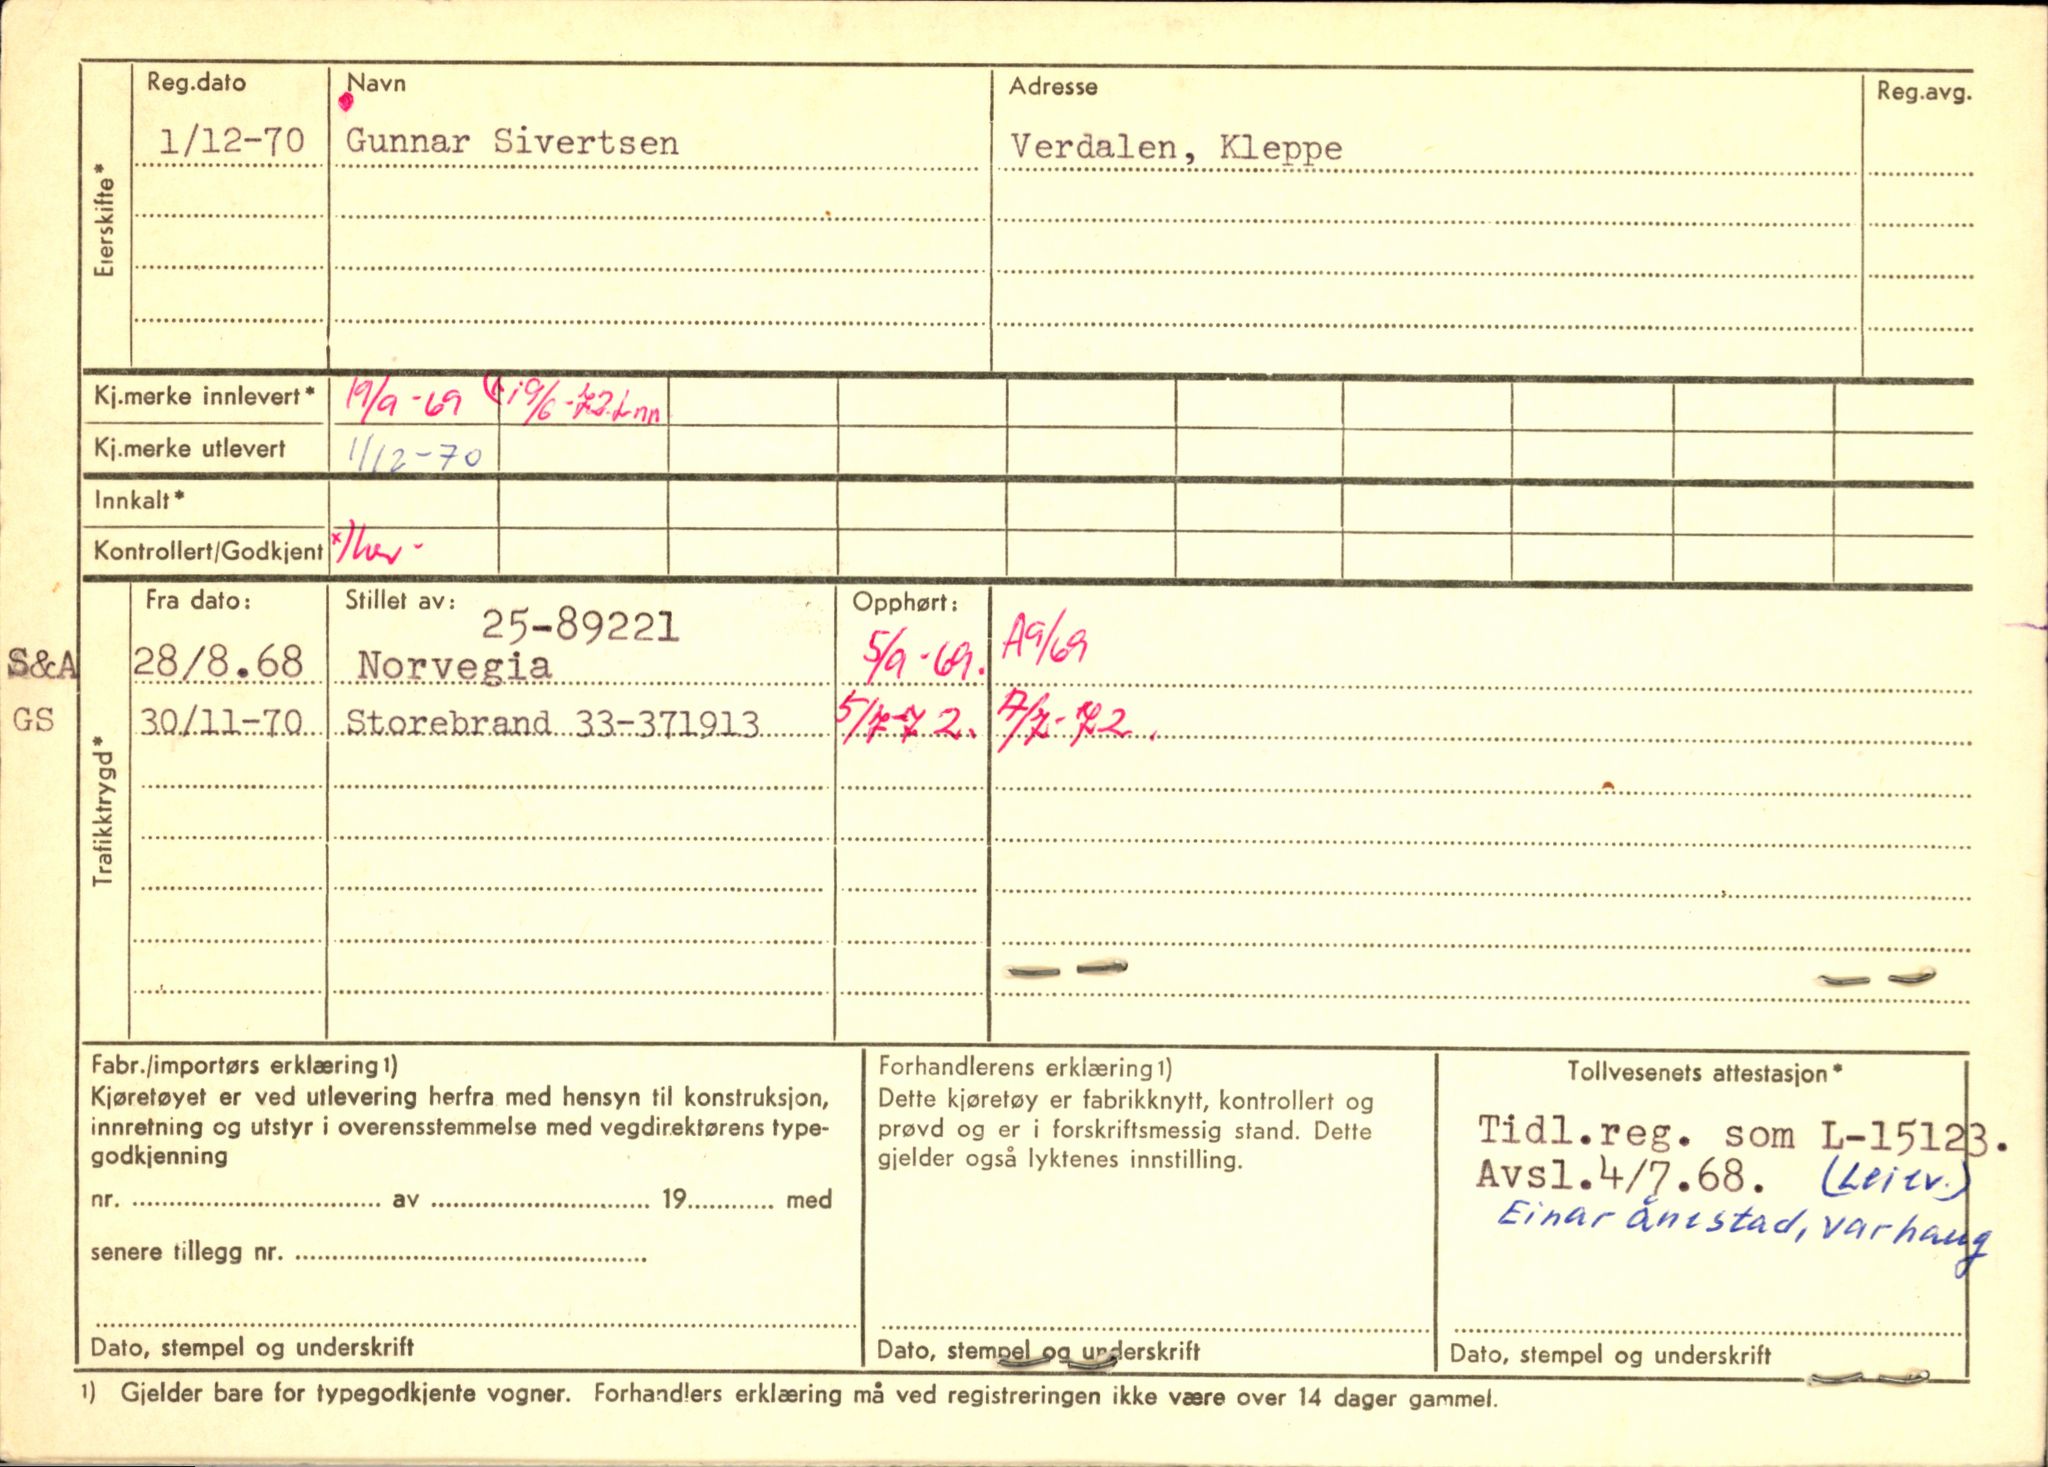 Eierskifte*
Reg.dato Navn Adresse Reg.avg.
1/12-70 Gunnar Sivertsen Verdalen, Kleppe
Kj.merke innlevert* 19/9-69 19/6-72
Kj.merke utlevert 1/12-70
Innkalt*
Kontrollert/Godkjent
Trafikktrygd*
Fra dato: Stillet av: Opphørt:
25-89221
S&A 28/8.68 Norvegia 5/9-69. A9/69
GS 30/11-70 Storebrand 33-371913 5/7-72. A/7-72.
Fabr./importørs erklæring1)
Kjøretøyet er ved utlevering herfra med hensyn til konstruksjon,
innretning og utstyr i overensstemmelse med vegdirektørens type-
godkjenning
nr. av 19 med
senere tillegg nr.
Dato, stempel og underskrift
Forhandlerens erklæring1)
Dette kjøretøy er fabrikknytt, kontrollert og
prøvd og er i forskriftsmessig stand. Dette
gjelder også lyktenes innstilling.
Dato, stempel og underskrift
Tollvesenets attestasjon*
Tidl.reg. som L-15123.
Avsl.4/7.68. (Leiev.)
Einar Ånestad, Varhaug
Dato, stempel og underskrift
1) Gjelder bare for typegodkjente vogner. Forhandlers erklæring må ved registreringen ikke være over 14 dager gammel.